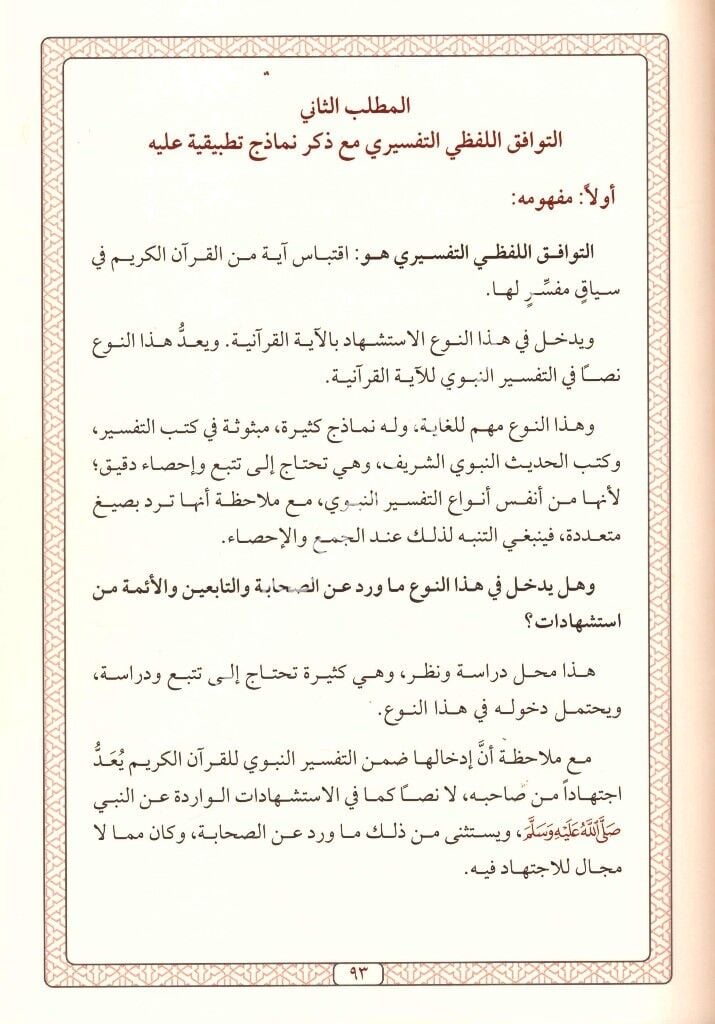 المطلب الثاني
التوافق اللفظي التفسيري مع ذكر نماذج تطبيقية عليه
أولاً: مفهومه:
التوافق اللفظي التفسيري هو: اقتباس آية من القرآن الكريم في
سياقٍ مفسِّرٍ لها.
ويدخل في هذا النوع الاستشهاد بالآية القرآنية. ويعدُّ هذا النوع
نصاً في التفسير النبوي للآية القرآنية.
وهذا النوع مهم للغاية، وله نماذج كثيرة، مبثوثة في كتب التفسير،
وكتب الحديث النبوي الشريف، وهي تحتاج إلى تتبع وإحصاء دقيق؛
لأنها من أنفس أنواع التفسير النبوي، مع ملاحظة أنها ترد بصيغ
متعددة، فينبغي التنبه لذلك عند الجمع والإحصاء.
وهل يدخل في هذا النوع ما ورد عن الصحابة والتابعين والأئمة من
استشهادات؟
هذا محل دراسة ونظر، وهي كثيرة تحتاج إلى تتبع ودراسة،
ويحتمل دخوله في هذا النوع.
مع ملاحظة أنَّ إدخالها ضمن التفسير النبوي للقرآن الكريم يُعَدُّ
اجتهاداً من صاحبه، لا نصاً كما في الاستشهادات الواردة عن النبي
صَلَّى اللَّهُ عَلَيْهِ وَسَلَّمَ، ويستثنى من ذلك ما ورد عن الصحابة، وكان مما لا
مجال للاجتهاد فيه.
٩٣